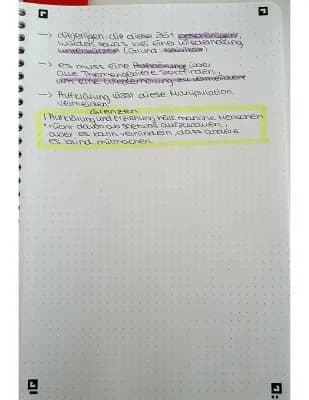 → diejenigen, die diese Zeit
würden sowas bei einer Wiederholung
unterstützen (Grund:
→ es muss eine Aufklärung über
alle Themengebiete stattfinden,
um eine Wiederholung zu vermeiden
→ Aufklärung lässt diese Manipulation
vermeiden!
Grenzen
! Aufklärung und Erziehung hält manche Menschen
nicht davon ab sowas aufzubauen,
aber es kann verhindern, dass andere
es blind mitmachen